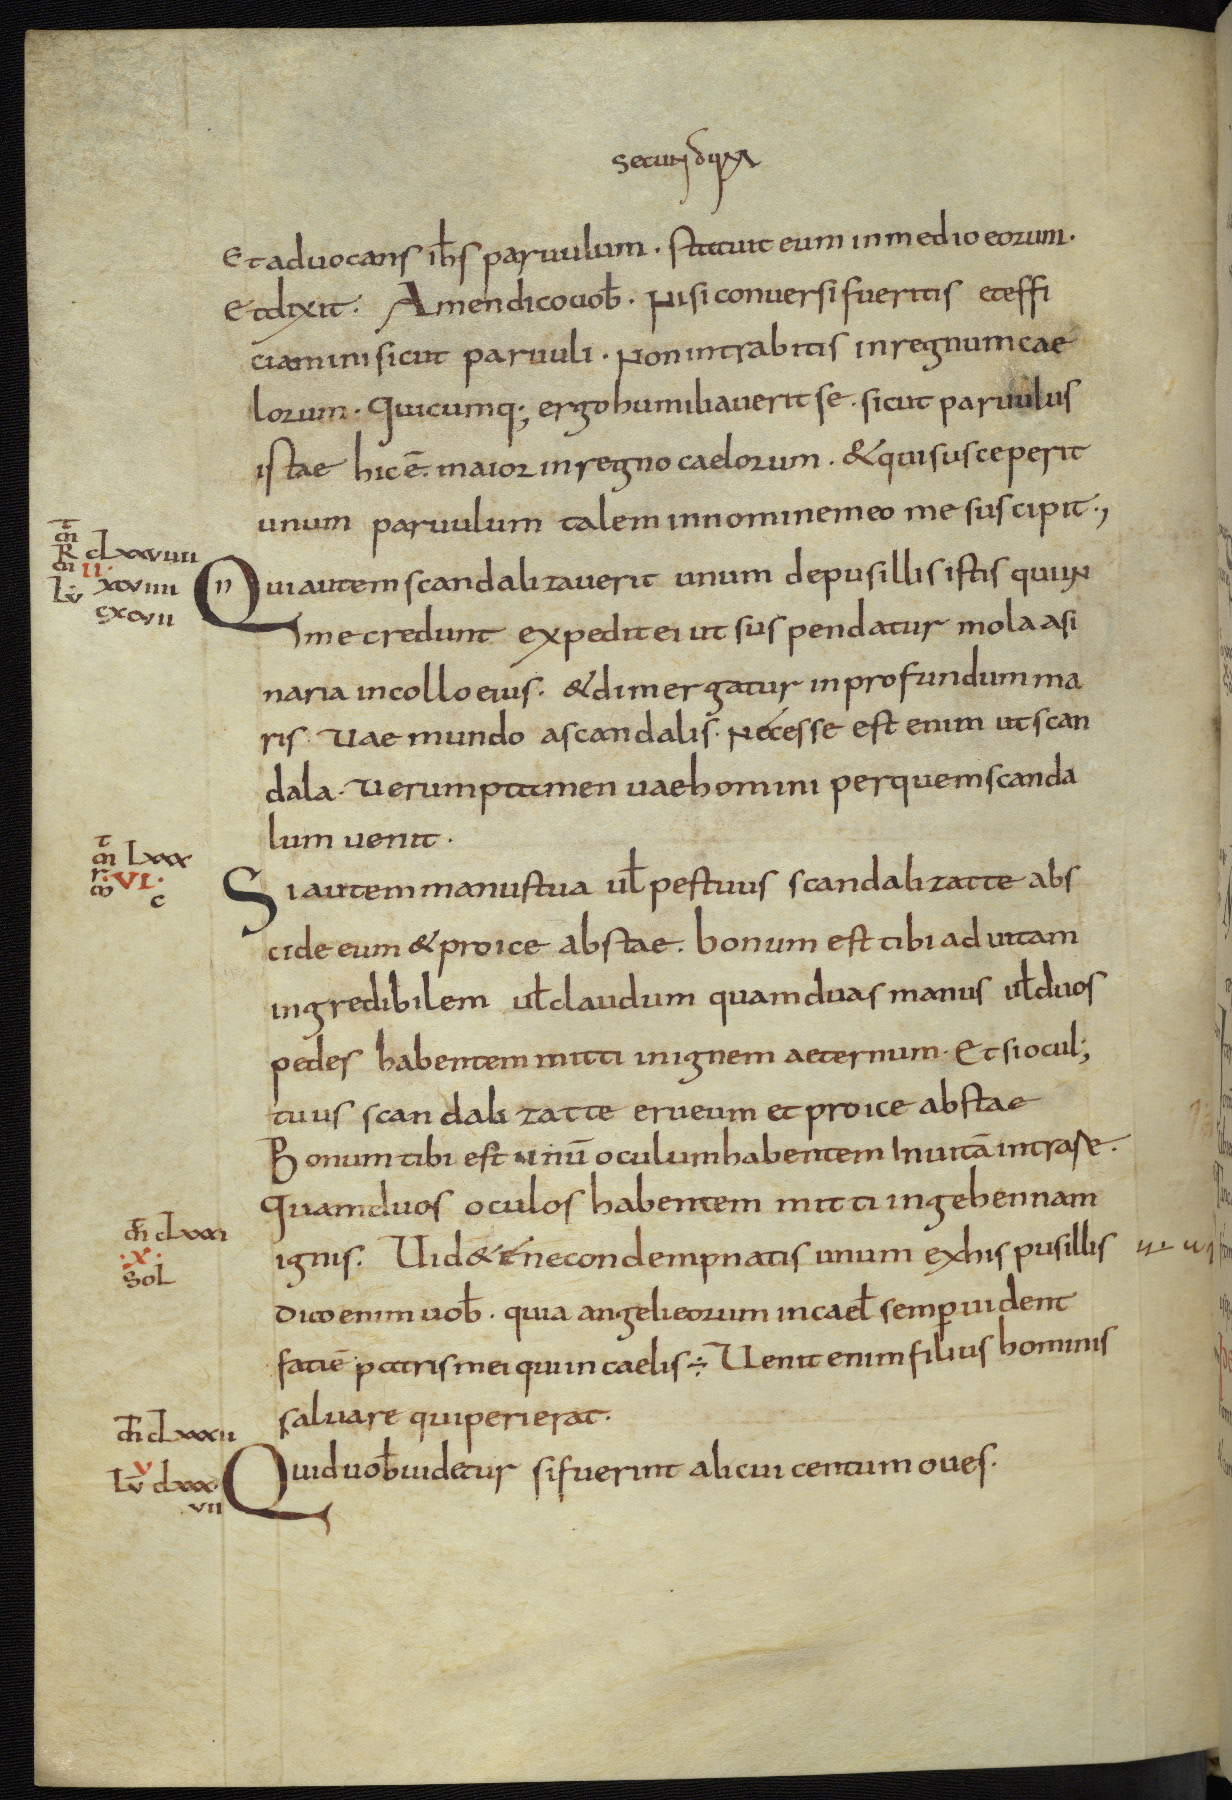 Secundum
Et advocans ih̄s parvulum. statuit eum in medio eorum.
Et dixit: Amen dico vob̄. Nisi conversi fueritis et effi
ciamini sicut parvuli. Non intrabitis in regnum cae
lorum. Quicumq; ergo humiliaverit se. sicut parvulus
istae hic ē. maior in regno caelorum. & qui susceperit
unum parvulum talem in nomine meo me suscipit.,
m̄t
R̄ clxxviiii
m̄ II. xcviiii
Lv̄ cxcvii
Qui autem scandalizaverit unum de pusillis istis qui in
me credunt expedit ei ut suspendatur mola asi
naria in collo eius. & dimergatur in profundum ma
ris. Vae mundo a scandalis. Necesse est enim ut scan
dala. Verumptamen vae homini per quem scanda
lum venit.
m̄t Lxxx
mr VI. c
Si autem manus tua vel̄ pes tuus scandalizat te abs
cide eum & proice abs tae. bonum est tibi ad vitam
ingredi bilem vel̄ claudum quam duas manus vel̄ duos
pedes habentem mitti in ignem aeternum. Et si ocul;
tuus scandalizat te erue um et proice abs tae
Bonum tibi est unū oculum habentem In vitā intrare.
Quam duos oculos habentem mitti in gehennam
m̄t clxxxi
.X.
Sol
ignis. Vid&e ne condempnatis unum ex his pusillis
Dico enim vob̄. quia angeli eorum in cael̄ semp̄ vident
faciē patris mei qui in caelis ÷ Venit enim filius hominis
salvare qui perierat.
m̄t clxxxii
V
Lv̄ clxxx
vii
Quid vob̄ videtur si fuerint alicui centum oves.